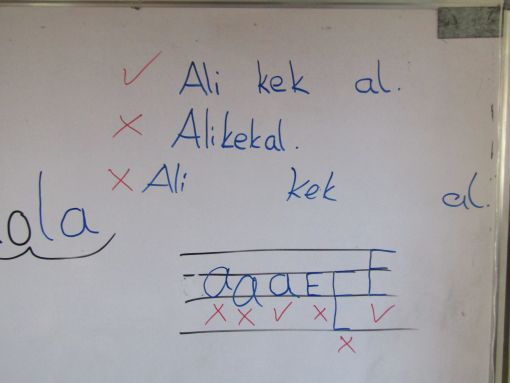 ✓ Ali kek al.
× Alikekal.
× Ali kek al.
ola
a a a E E E
× × ✓ × × ✓